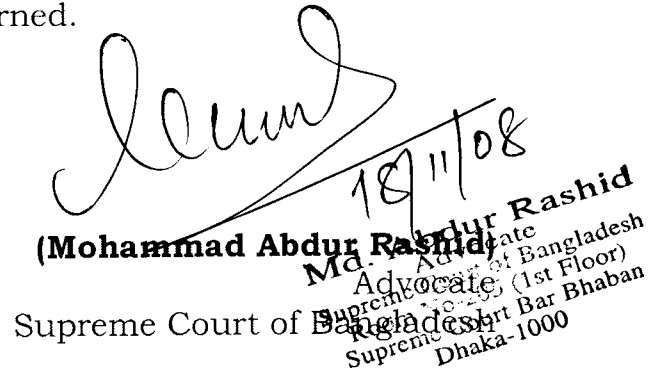 rned.
18/11/08
(Mohammad Abdur Rashid)
Advocate
Supreme Court of Bangladesh
Md. Abdur Rashid
Advocate
Supreme Court of Bangladesh
(1st Floor)
Supreme Court Bar Bhaban
Dhaka-1000